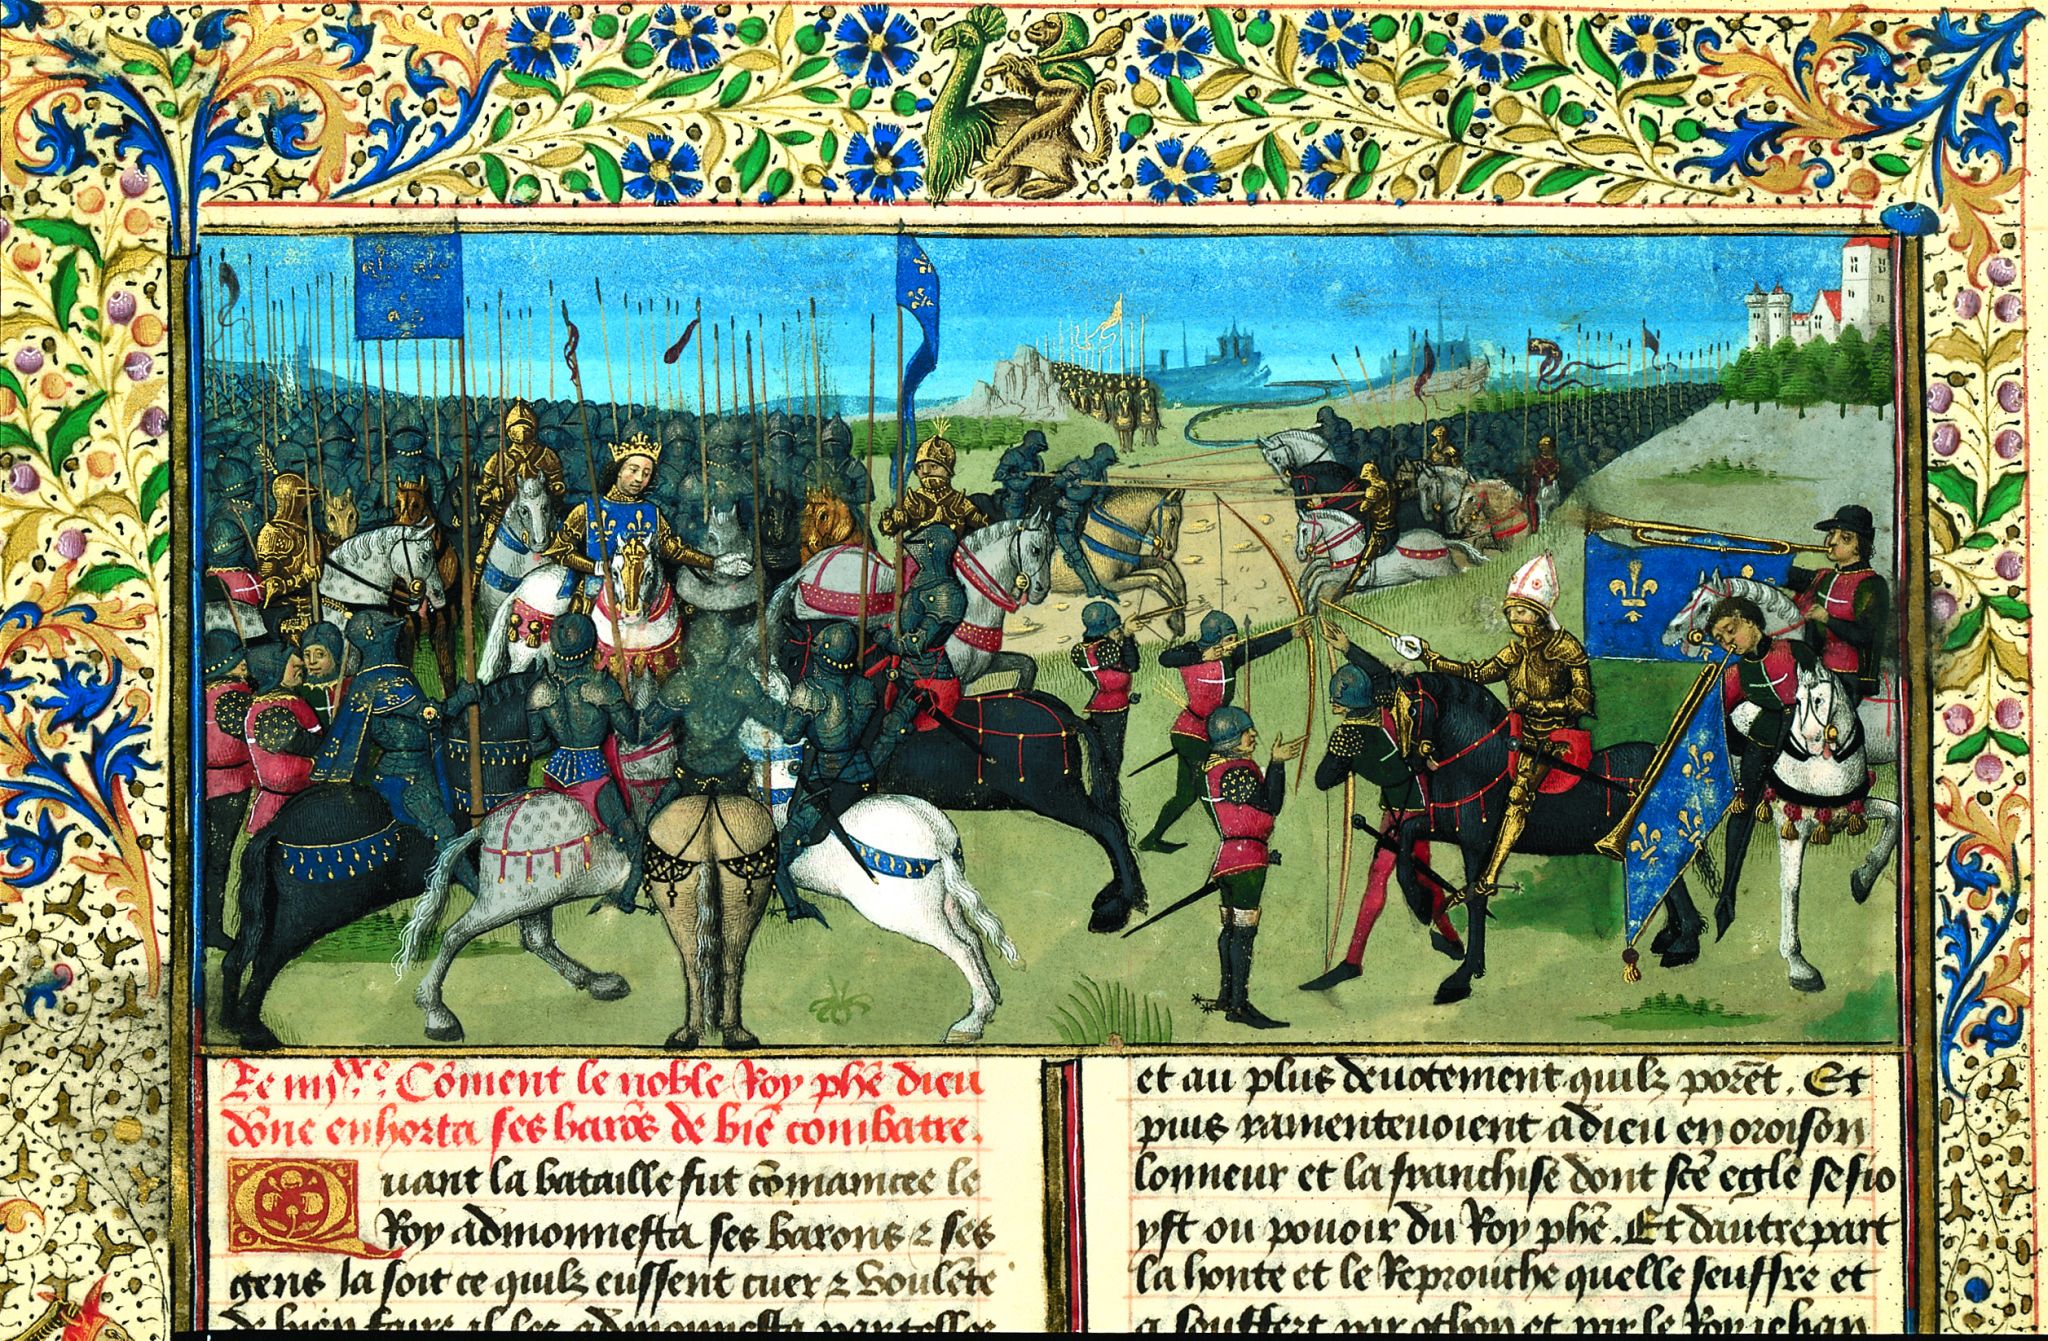 Le iiijxxe. Cōment le noble Roy phē dieu
dōne enhorta ses barōs de biē combatre.
Quant la bataille fut cōmancee le
Roy admonnesta ses barons ⁊ ses
gens Ja soit ce quilz eussent cuer ⁊ voulēte
de bien faire il les admonnesta par telles
et au plus deuotement quilz porēt. Et
puis ramenteuoient a dieu en oroison
lonneur et la franchise dont scē eglē se sio
yst ou pouoir du Roy phē. Et dautre part
la honte et le Reprouche quelle seuffre et
a souffert par othon et par le Roy iehan